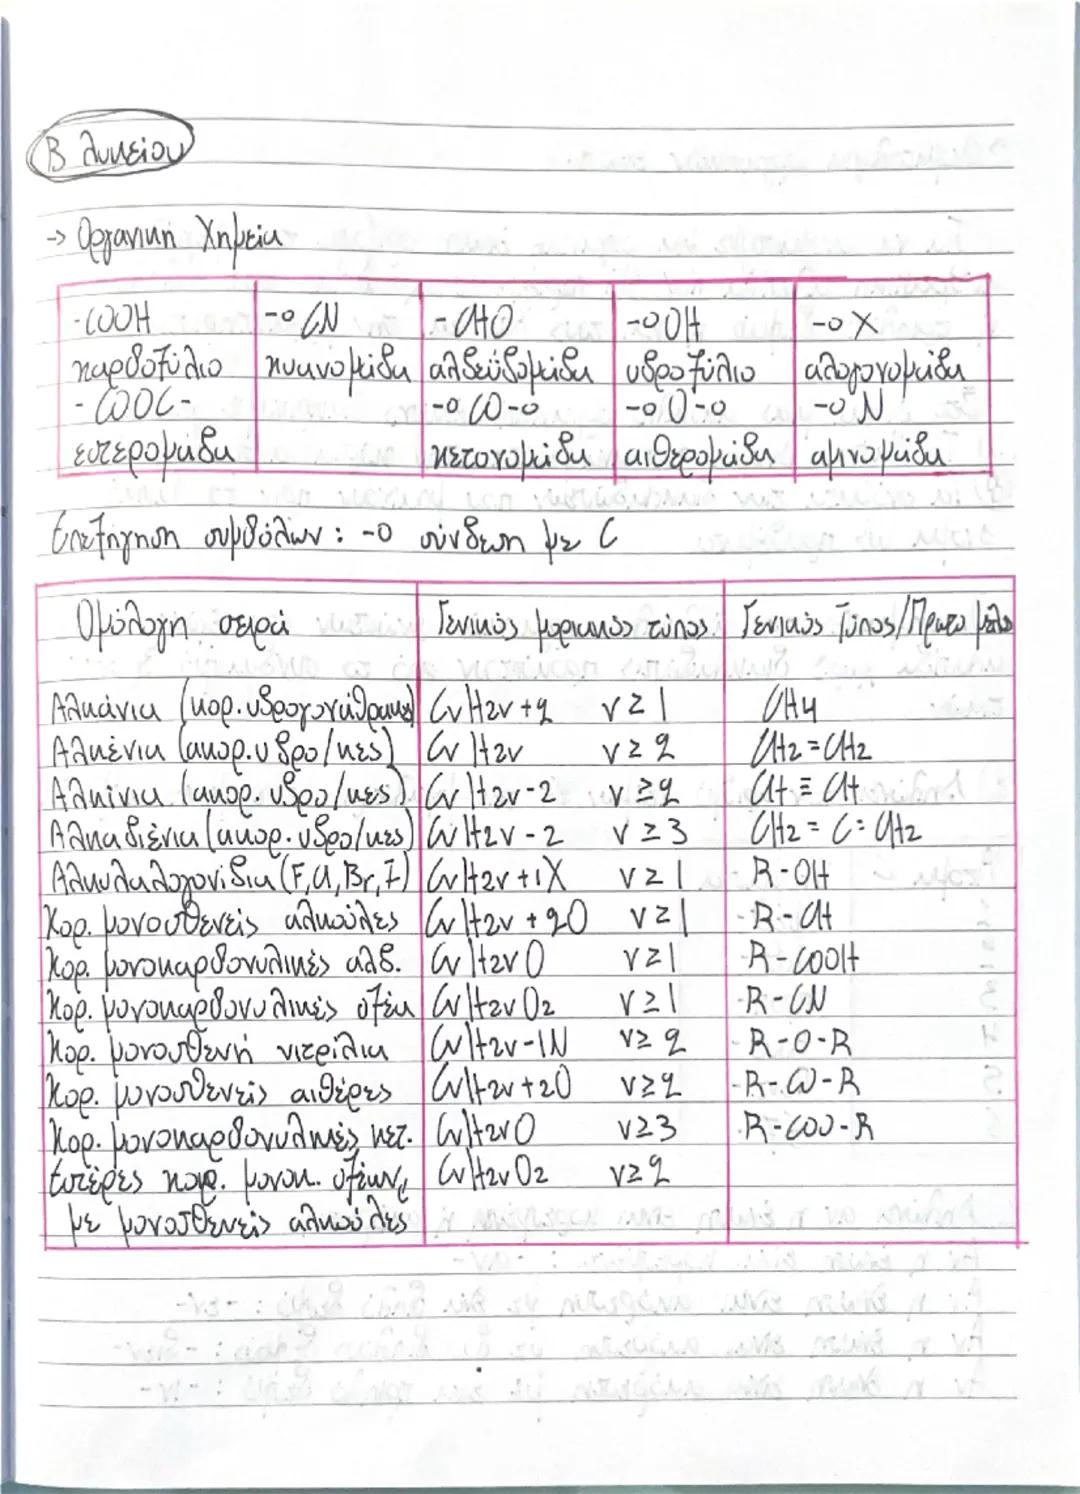 Β Λυκείου
-> Οργανική Χημεία
-COOH -o CN - CHO -o OH -o X
καρβοξύλιο κυανομάδα αλδεϋδομάδα υδροξύλιο αλογονομάδα
- COOC- -o CO-o -o O-o -o N
εστερομάδα κετονομάδα αιθερομάδα αμινομάδα
Επεξήγηση συμβόλων : -o σύνδεση με C
Ομόλογη σειρά Γενικός μοριακός τύπος Γενικός Τύπος/Πρώτο μέλος
Αλκάνια (κορ. υδρογονάθρακες) CνH2ν+2 ν≥1 CH4
Αλκένια (ακορ. υδρο/κες) CνH2ν ν≥2 CH2=CH2
Αλκίνια (ακορ. υδρο/κες) CνH2ν-2 ν≥2 CH≡CH
Αλκαδιένια (ακορ. υδρο/κες) CνH2ν-2 ν≥3 CH2=C=CH2
Αλκυλαλογονίδια (F, Cl, Br, I) CνH2ν+1X ν≥1 R-OH
Κορ. μονοσθενείς αλκοόλες CνH2ν+2O ν≥1 -R-CH
Κορ. μονοκαρβονυλικές αλδ. CνH2νO ν≥1 R-COOH
Κορ. μονοκαρβονυλικές οξέα CνH2νO2 ν≥1 -R-CN
Κορ. μονοσθενή νιτρίλια CνH2ν-1N ν≥2 R-O-R
Κορ. μονοσθενείς αιθέρες CνH2ν+2O ν≥2 -R-CO-R
Κορ. μονοκαρβονυλικές κετ. CνH2νO ν≥3 R-COO-R
Εστέρες κορ. μονοκ. οξέων, CνH2νO2 ν≥2
με μονοσθενείς αλκοόλες